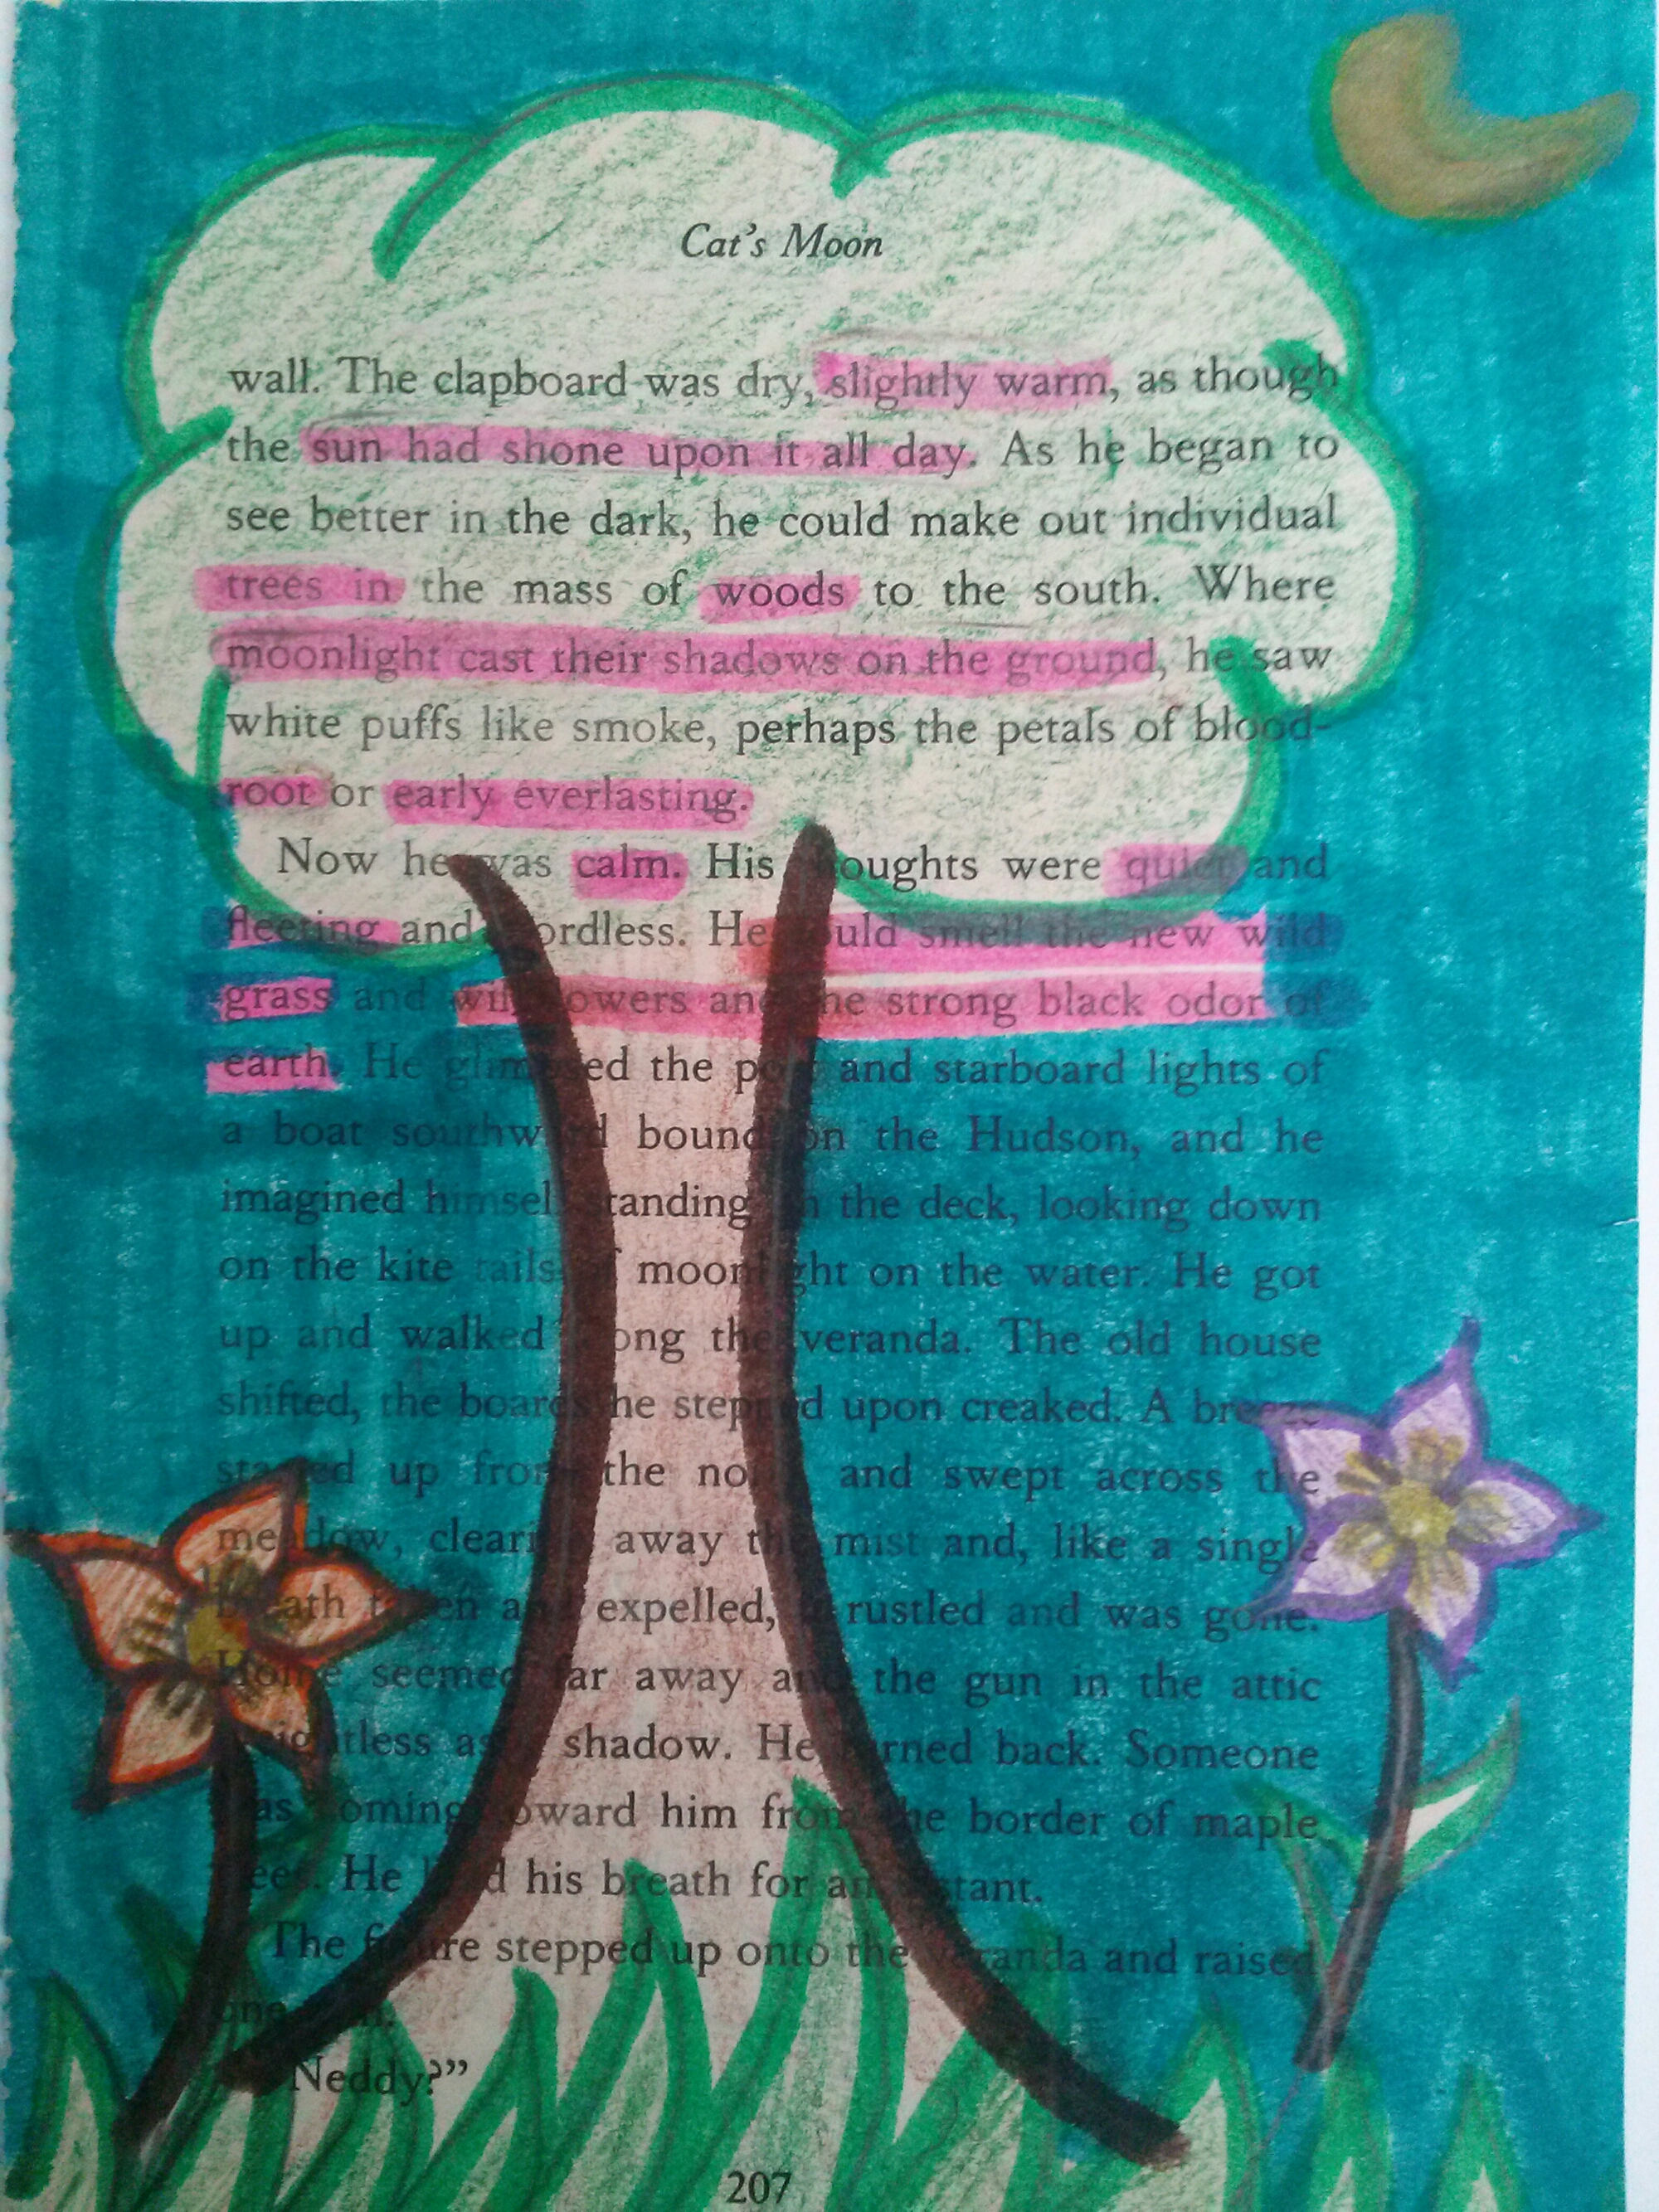 Cat's Moon
wall. The clapboard was dry, slightly warm, as though
the sun had shone upon it all day. As he began to
see better in the dark, he could make out individual
trees in the mass of woods to the south. Where
moonlight cast their shadows on the ground, he saw
white puffs like smoke, perhaps the petals of blood-
root or early everlasting.
Now he was calm. His thoughts were quiet and
fleeting and wordless. He could smell the new wild
grass and wildflowers and the strong black odor of
earth. He glimpsed the port and starboard lights of
a boat southward bound on the Hudson, and he
imagined himself standing on the deck, looking down
on the kite tails of moonlight on the water. He got
up and walked along the veranda. The old house
shifted, the boards he stepped upon creaked. A breeze
started up from the north and swept across the
meadow, clearing away the mist and, like a single
breath taken and expelled, it rustled and was gone.
Home seemed far away and the gun in the attic
weightless as a shadow. He turned back. Someone
was coming toward him from the border of maple
trees. He held his breath for an instant.
The figure stepped up onto the veranda and raised
one
Neddy?”
207